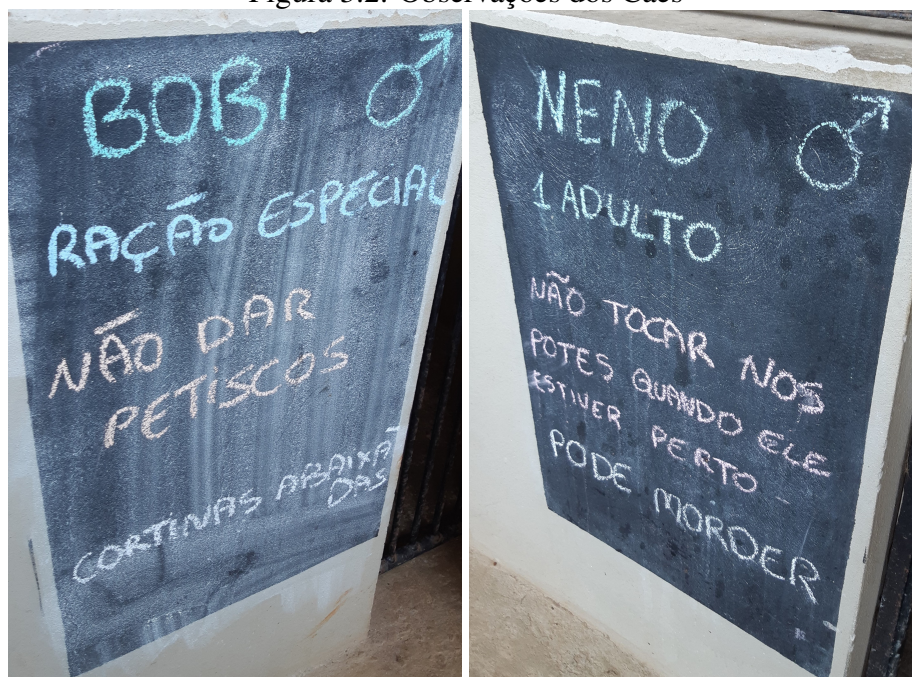 Figura 3.2: Observações dos Cães
BOBI ♂
RAÇÃO ESPECIAL
NÃO DAR
PETISCOS
CORTINAS ABAIXA
DAS
NENO ♂
1 ADULTO
NÃO TOCAR NOS
POTES QUANDO ELE
ESTIVER PERTO
PODE MORDER